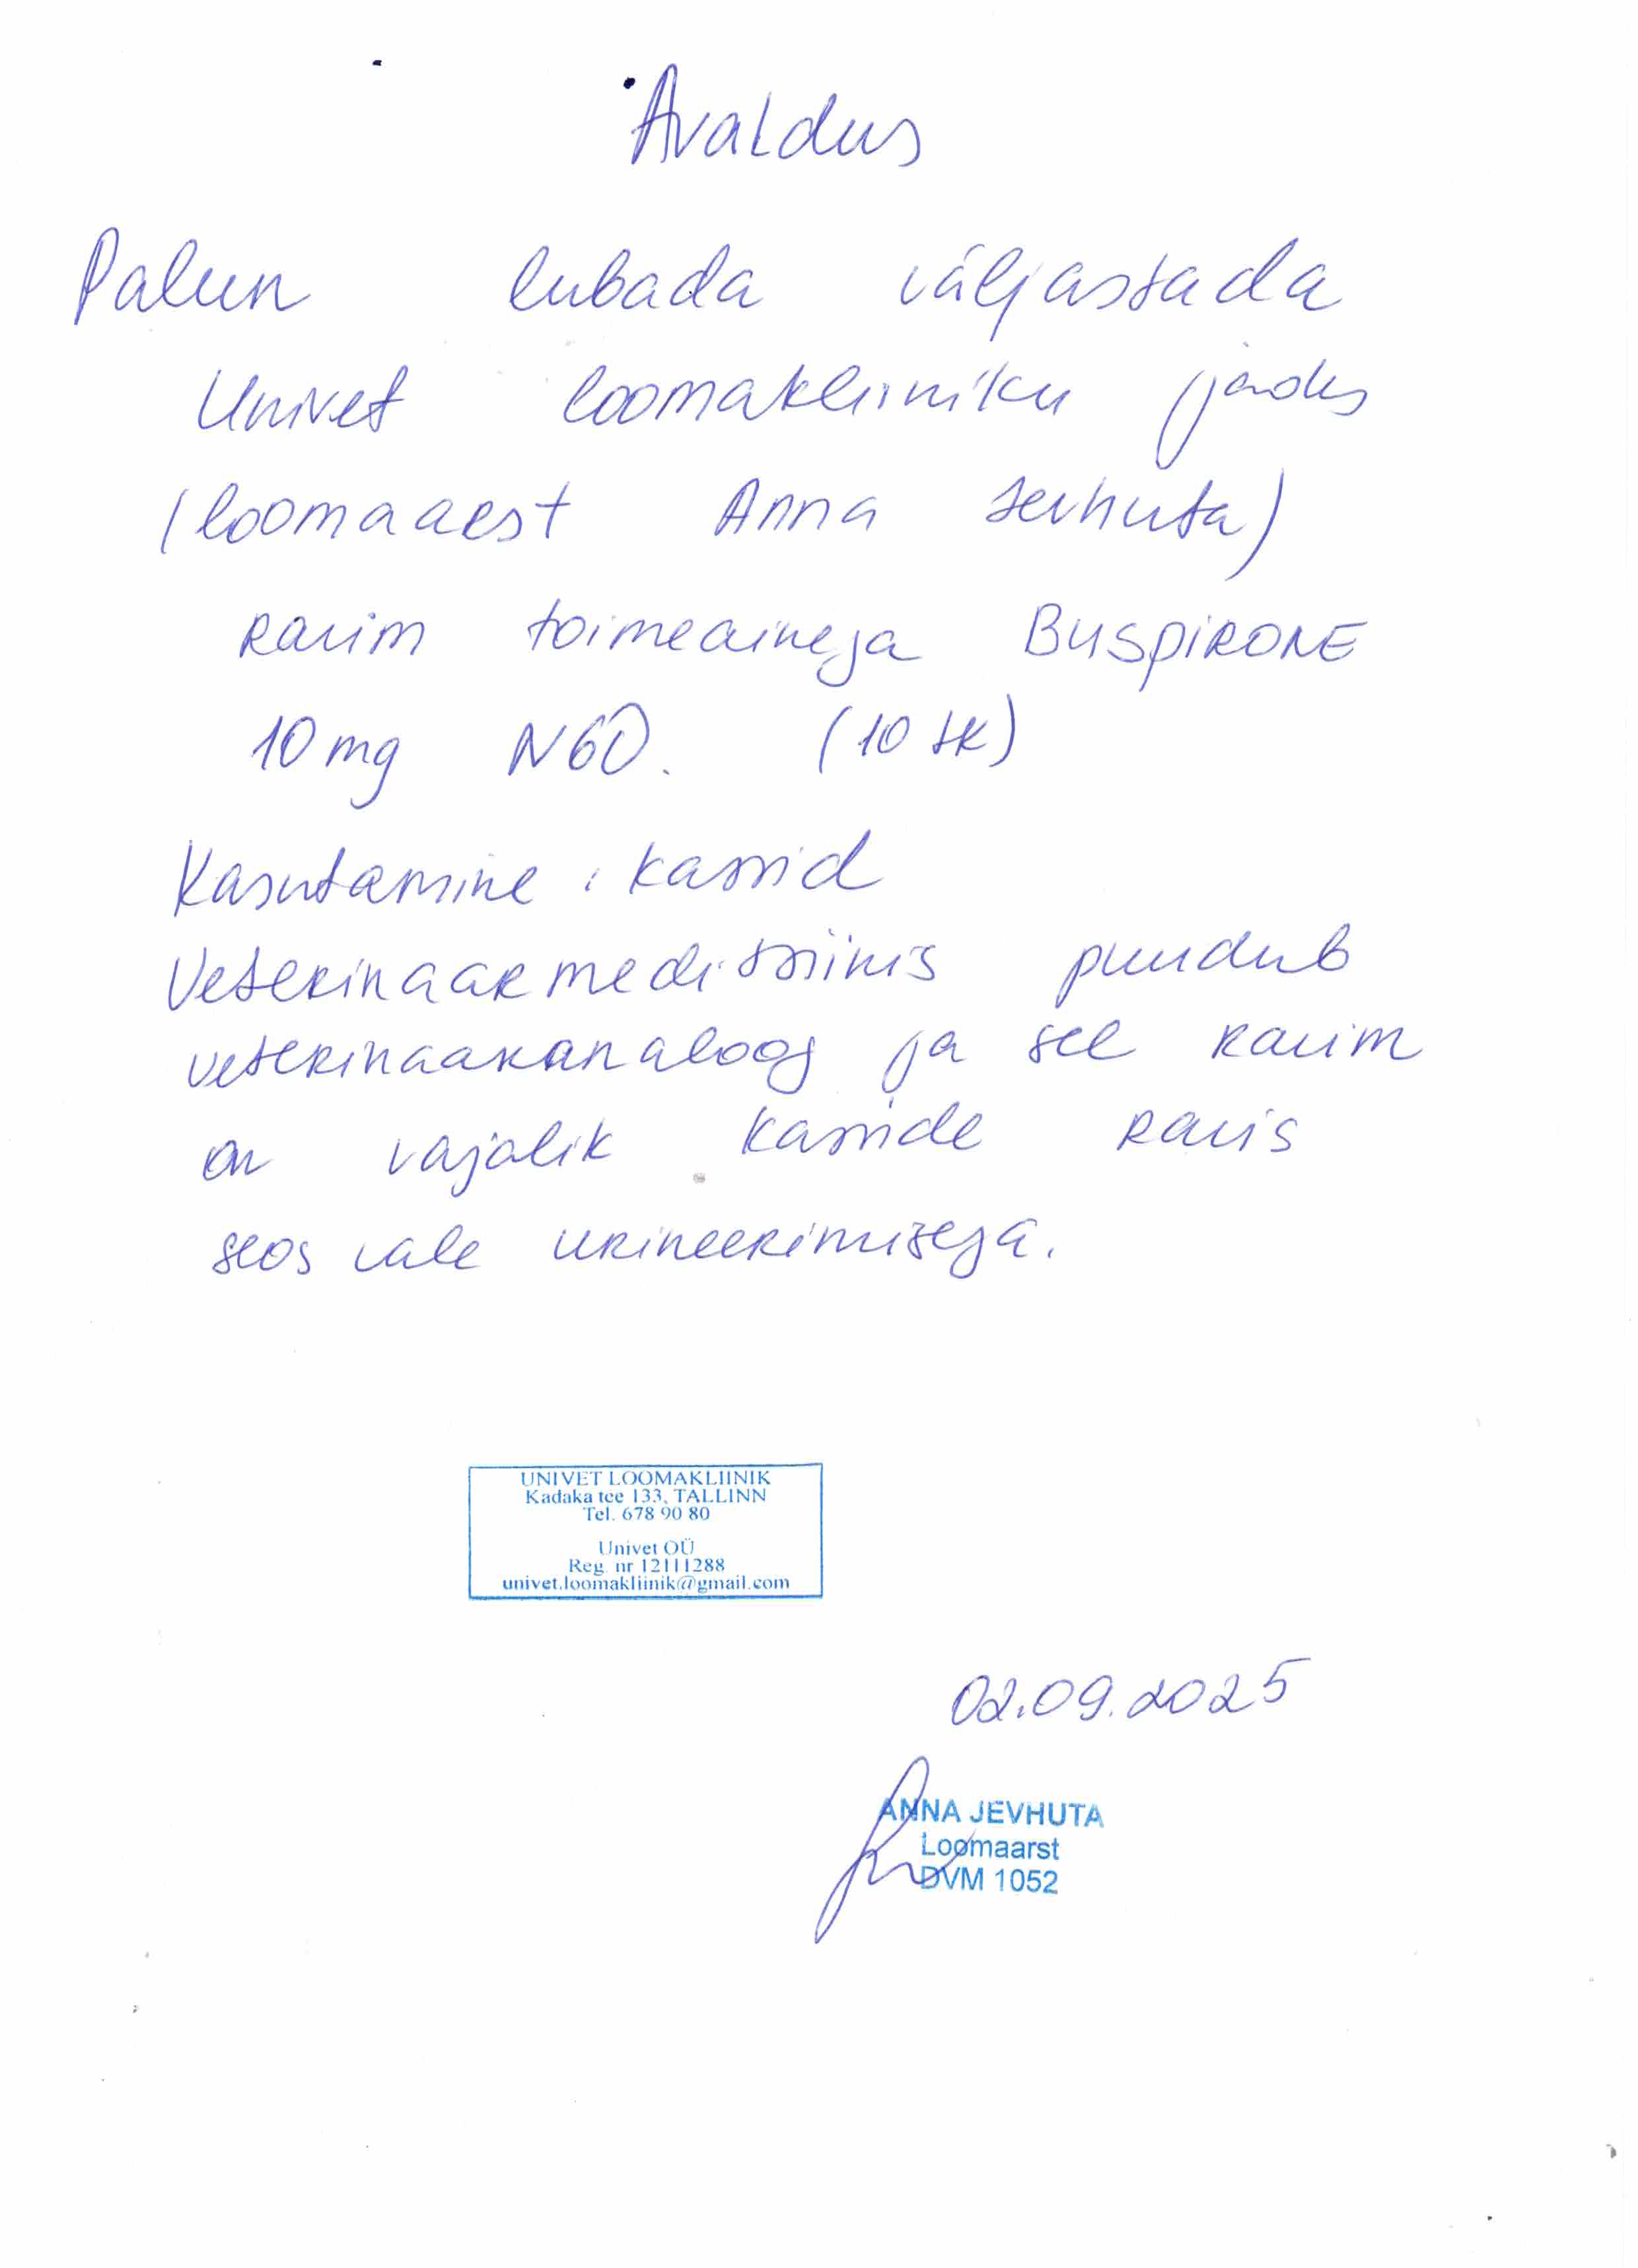 Avaldus
Palun lubada väljastada
Univet loomakliiniku jaoks
(loomaarst Anna Jevhuta)
ravim toimeainega BUSPIRONE
10 mg N60. (10 tk)
Kasutamine: kassid
Veterinaarmeditsiinis puudub
veterinaaranaloog ja see ravim
on vajalik kasside ravis
seos vale urineerimisega.
UNIVET LOOMAKLIINIK
Kadaka tee 133, TALLINN
Tel. 678 90 80
Univet OÜ
Reg. nr 12111288
univet.loomakliinik@gmail.com
02.09.2025
ANNA JEVHUTA
Loomaarst
DVM 1052